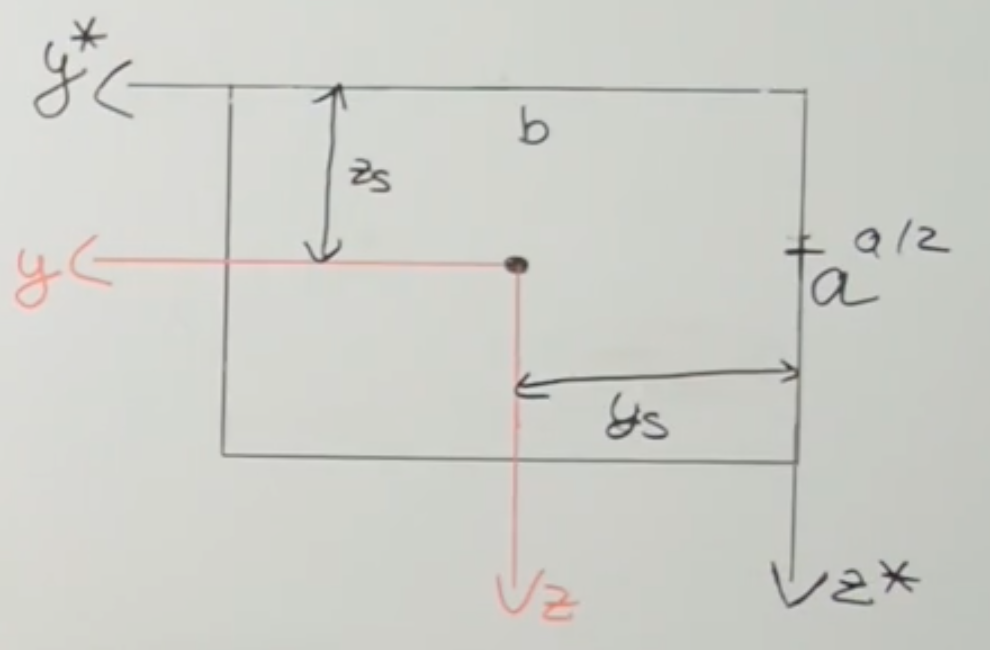 y*
b
zs
a/2
y
a
ys
z
z*